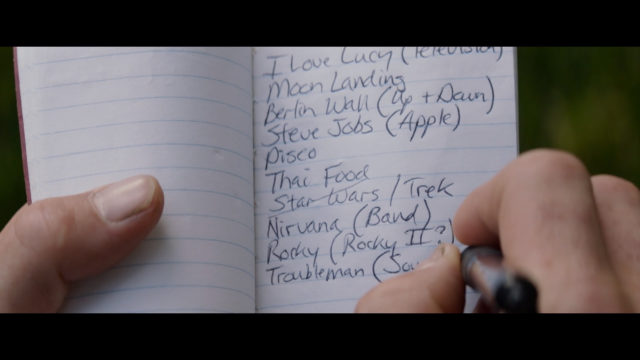 I Love Lucy (Television)
Moon Landing
Berlin Wall (Up + Down)
Steve Jobs (Apple)
Disco
Thai Food
Star Wars / Trek
Nirvana (Band)
Rocky (Rocky II?)
Troubleman